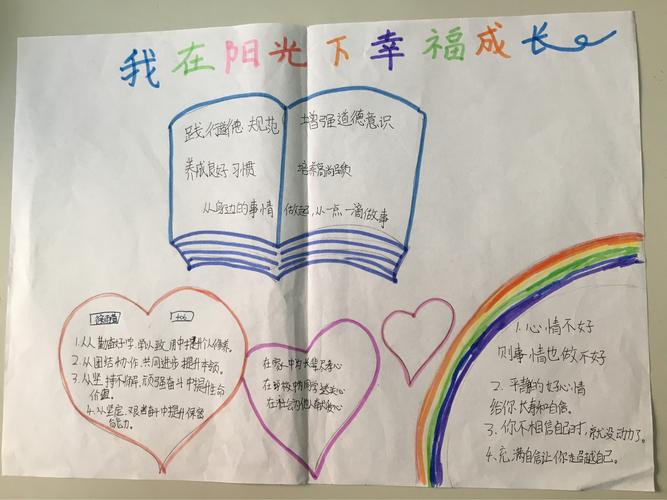 我在阳光下幸福成长
践行道德规范 增强道德意识
养成良好习惯 培养高尚品质
从身边的事情做起,从一点一滴做事
1.从人勤奋好学,学以致用中提升个人修养。
2.从团结协作,共同进步提升本领。
3.从坚持不懈,顽强奋斗中提升生命
价值。
4.从坚定、艰苦奋斗中提升
能力。
在家中为长辈尽孝心
在学校中为同学送关心
在社会为他人献爱心
1.心情不好
则事情也做不好
2.平静的好心情
给你和自信。
3.你不相信自己时,就没动力了。
4.充满自信让你超越自己。